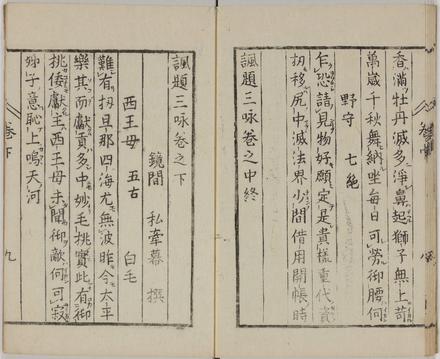 香滿牡丹滅多淨鼻起獅子無上苛
萬歲千秋舞納坐每日可勞御腰何
野守 七絶
乍恐請見物好願定是貴樣重代資
扨移尻中滅法界少間借用開帳時
諷題三咏卷之中終
諷題三咏卷之下
鏡間 私牽幕 撰
西王母 五古 白毛
難有扨且那四海尤無波昨今太平
樂其而獻貢多中妙毛挑實此有御
挑倭獻主西王母未聞御敵何可寂
子意恥上鳴天河
卷下 九